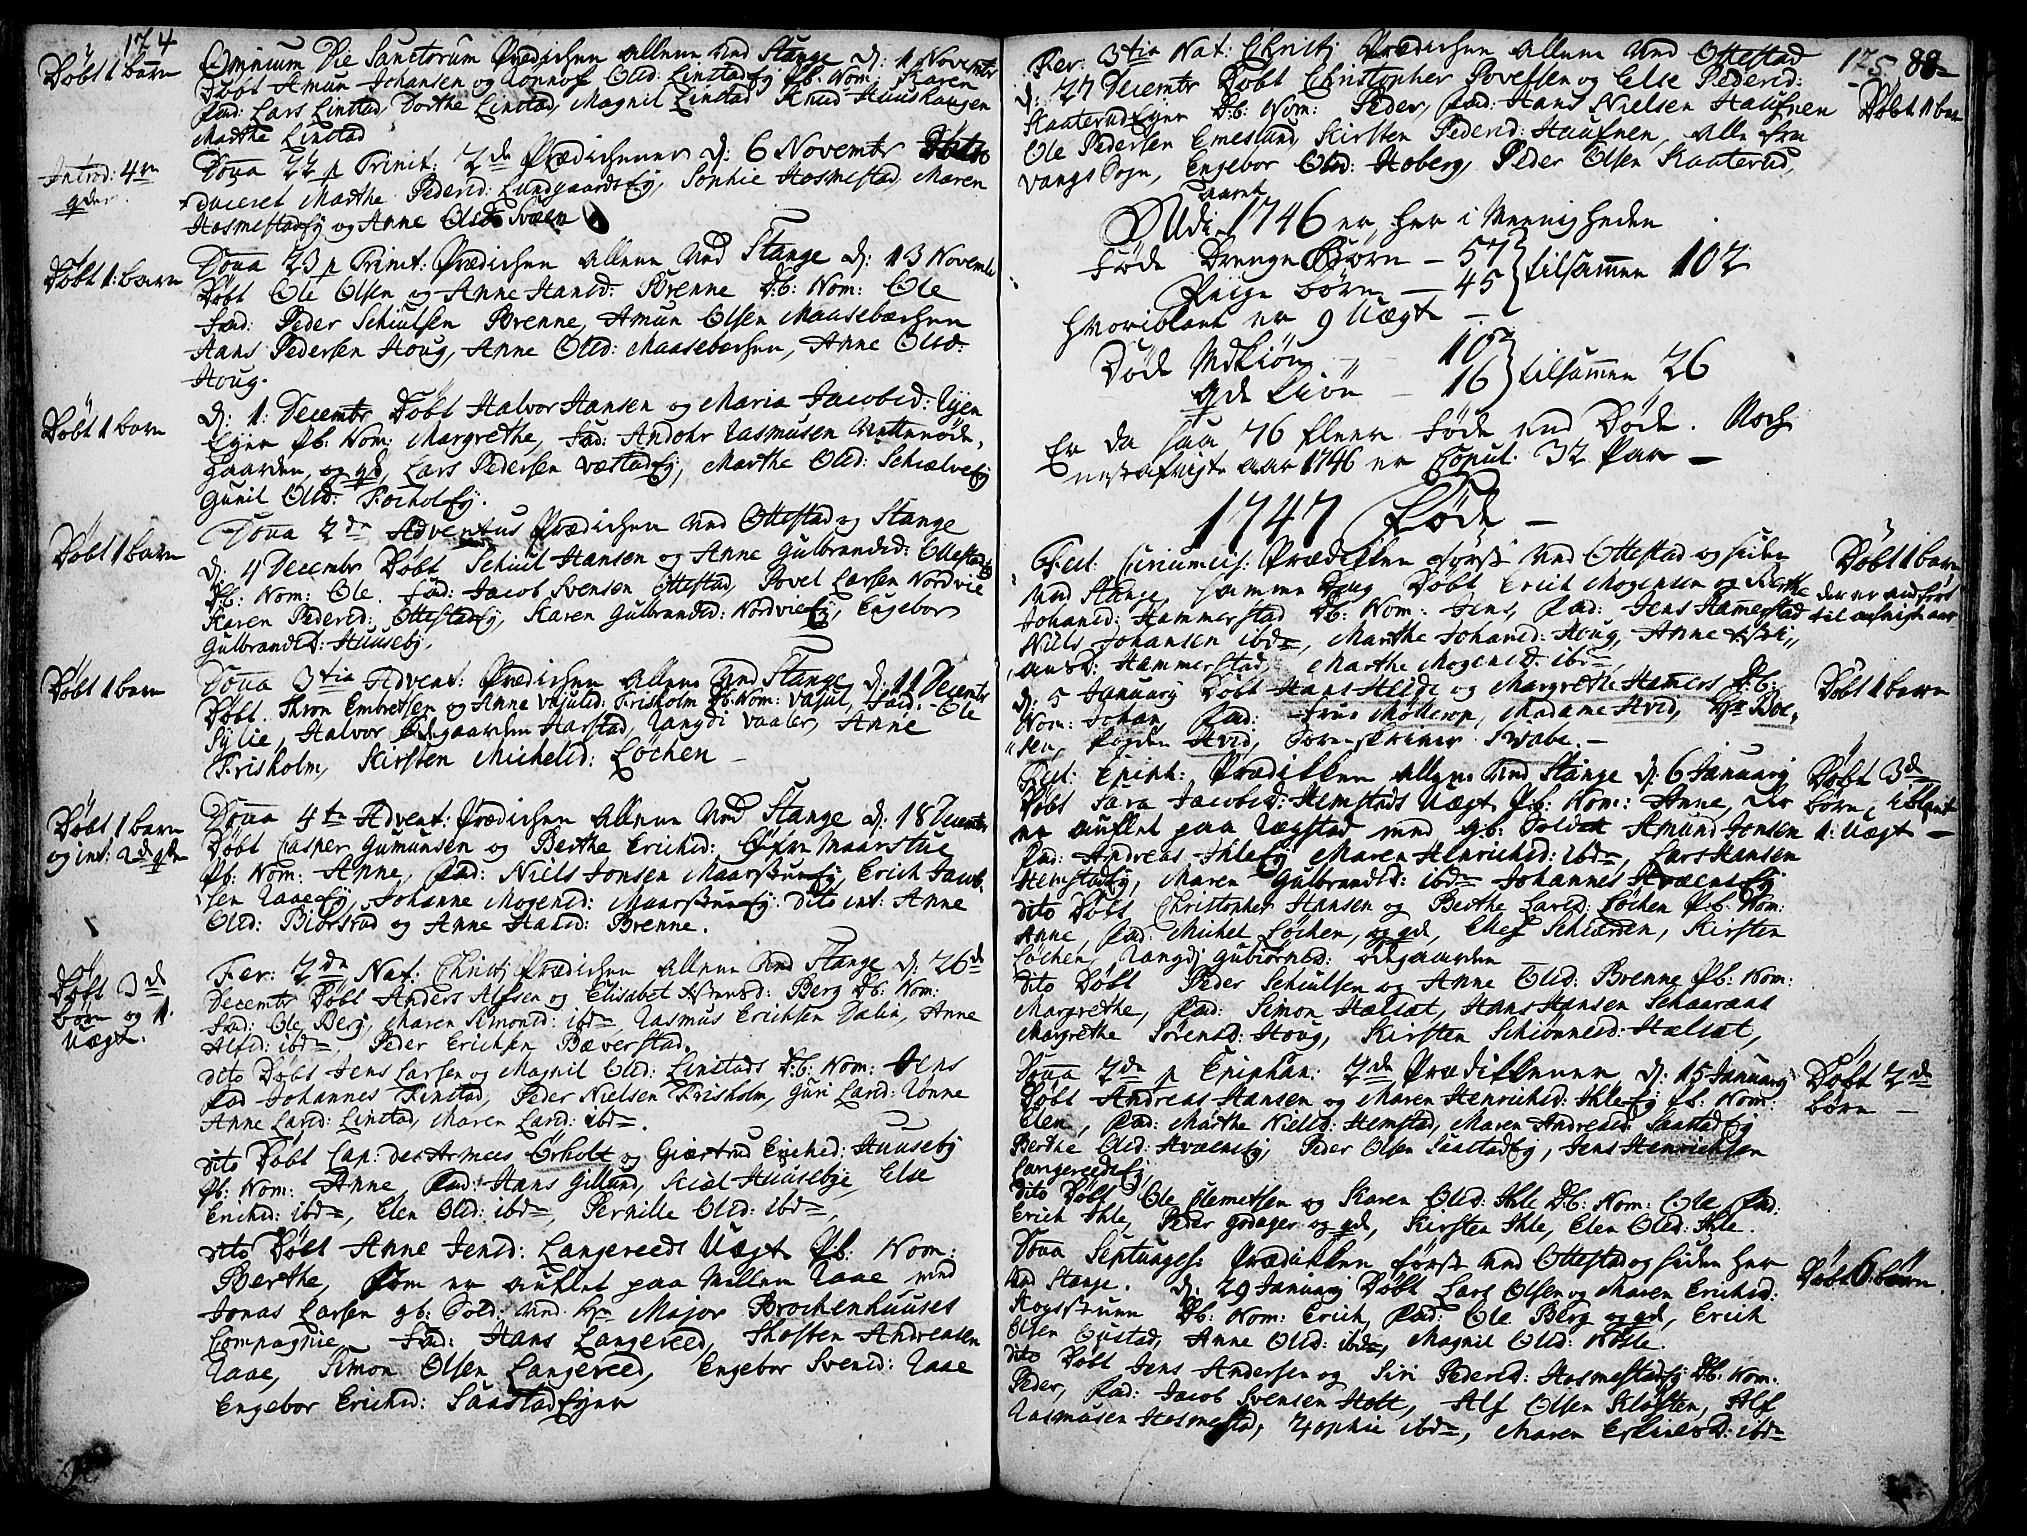 174
Döbt 1 barn
Omnium Die Sanctorum Prædichen allene ved Stange d: 1 Novembr
Döbt Amun Johansen og Ronnof Olsd: Linstadey Pb: Nom: Karen
fad: Lars Linstad, Dorthe Linstad, Magnil Linstad Knud Huushaugen
Marthe Linstad
Introd: 4re
qder.
Dona 22 p Trinit: 2de Prædichener d: 6 Novembr
duceret Marthe Pedersd: Lundgaardsey, Sophie Hosmestad, Maren
Hosmestadey og Anne Olsd: Svæen
Döbt 1: barn
Dona 23 p Trinit: Prædichen allene ved Stange d: 13 Novembr
Döbt Ole Olsen og Anne Hansd: Brenne D:b: Nom: Ole
Fad: Peder Schiulsen Brenne, Amun Olsen Maasebechen
Hans Pedersen Houg, Anne Olsd: Maasebechen, Anne Olsd:
Houg.
Döbt 1 barn
d: 1: Decembr Döbt Halvor Hansen og Maria Jacobsd: Ujen
Eyen Pb: Nom: Margrethe, Fad: Andohr Rasmusen Nattenøde,,
gaarden, og qd, Lars Pedersen Væstadey, Marthe Olsd: Schiælvey
Gunil Olsd: Focholey.
Döbt 1 barn
Dona 2de Adventus Prædichen ved Ottestad og Stange
d: 4 Decembr Döbt Schiul Hansen og Anne Gulbrandsd: Ottestadey
Db: Nom: Ole. Fad: Jacob Svensen Ottestad, Povel Larsen Nordvie
Karen Pedersd: Ottestadey, Karen Gulbrandsd: Nordviey, Engebor
Gulbrandsd: Huusebÿ.
Döbt 1 barn
Dona 3tia Advent: Prædichen allene ved Stange d: 11 Decembr
Döbt. Thron Embretsen og Anne Vasulsd: Frisholm Db: Nom: Vasul, Fad: Ole
Sylie, Halvor Ødegaarden Harstad, Rangdi Vaaler, Anne
Frisholm, Kirsten Michelsd: Löchen
Döbt 1 barn
og int: 2de qder
Dona 4te Advent: Prædichen allene ved Stange d: 18 Decembr
Döbt Casper Gumunsen og Berthe Erichsd: Öfre Maarstue
Pb: Nom: Anne, Fad: Niels Jonsen Maarstuey, Erich Jacob,
sen Raaey, Johanne Mogensd: Maarstuey. dito int: Anne
Olsd: Biörstad og Anne Hansd: Brenne.
Döbt 3de
börn og 1.
Uægt.
Fer: 2da Nat: Christi Prædichen allene ved Stange d: 26de
Decembr Döbt Anders Alfsen og Elisabet Amunsd: Berg Db: Nom:
Fad: Ole Berg, Maren Simonsd: ibdm, Rasmus Erichsen Dalin, Anne
Alfsd: ibdm, Peder Erichsen Bæverstad.
dito Döbt Jens Larsen og Magnil Olsd: Linstads D:b: Nom: Jens
Fad Johannes Finstad, Peder Nielsen Frisholm, Guri Larsd: Ronne
Anne Larsd: Linstad, Maren Larsd: ibdm.
dito Döbt Cap: des Armees Örholt og Giærtrud Erichsd: Huusebÿ
Pb: Nom: Anne, Fad: Hans Gillund, Kield Huusebye, Else
Erichsd: ibdm, Elen Olsd: ibdm, Pernille Olsd: ibdm,
dito Döbt Anne Jensd: Langereeds Uægt Pb: Nom:
Berthe, som er auflet paa Millem Raae med
Jonas Larsen gb: Sold: ved Hr Major Brochenhuuses
Compagnie, Fad: Hans Langereed, Thosten Andreasen
Raae, Simon Olsen Langereed, Engebor Svensd: Raae
Engebor Erichsd: Saastadeyer
175. 88
Fer: 3tia Nat: Christi Prædichen allene ved Ottestad
d: 27 Decembr Döbt Christopher Povelsen og Else Pedersd:
Kaaterudeyer D:b: Nom: Peder, fad: Hans Nielsen Haufnen
Ole Pedersen Emeslund, Kirsten Pedersd: Haufnen, alle fra
vangs Sogn, Engebor Olsd: Hoberg, Peder Olsen Kaaterud,
Döbt 1 barn
Udi aaret 1746 er her i Meenigheden
föde Drenge Börn - 57
Pige börn - 45 } tilsammen 102
hvoriblant er 9 Uægte
Döde Mdkiön - 10
qde kiön - 16 } tilsammen 26
Er da saa 76 fleere föde end Döde. Noch
nestafvigte aar 1746 er Copul: 32 Par
1747 Föde
Fest: Circumcis: Prædikken först ved Ottestad og siden
ved Stange, samme Dag Döbt Erich Mogensen og Berthe
Johansd: Hammerstad Db: Nom: Jens, Fad: Jens Hamerstad
Niels Johansen ibdm, Marthe Johansd: Houg, Anne
Hammerstad, Marthe Mogensd: ibdm,
Döbt 1 barn
der er andfört
til afvigte aar
d: 5 January Döbt Hans Heide og Margrethe Hamers D:b:
Nom: Johan, Fad: Frue Möllerop, Madame Hvid, Hr Boe,,
sen, fogden Hvid, Sorenskriver Svabe.
Döbt 1 barn
Fest: Epiph: Prædikken allene ved Stange d: 6 January
Döbt Sara Jacobsd: Hemstads Uægt Pb: Nom: Anne, der
er auflet paa Ragstad med gb: Soldat Amund Jonsen
Fad: Andreas Ihleey Maren Henrichsd: ibdm, Lars Hansen
Hemstadey, Maren Gulbrandsd: ibdm Johannes Hvæensey
Döbt 3de
börn, iblant
1: Uægt
dito Döbt Christopher Hansen og Berthe Larsd: Löchen Pb: Nom:
Anne, Fad: Michel Löchen, og qd, Elef Schiærden, Kirsten
Löchen, Rangdi Gubiörnsd: Ödegaarden
dito Döbt Peder Schiulsen og Anne Olsd: Brenne Pb: Nom:
Margrethe, Fad: Simon Hælset, Hans Hansen Schaaraas
Margrethe Sörensd: Houg, Kirsten Schiönnesd: Hælset,
Dona 2da p Epiphan: 2de Prædikkener d: 15 January
Döbt Andreas Hansen og Maren Henrichsd: Ihleey Pb: Nom:
Elen, Fad: Marthe Nielsd: Hemstad, Maren Andersd: Saastadey
Berthe Olsd: Hvæensey, Peder Olsen Saastadey, Jens Henrichsen
Langereedsey
Döbt 2de
börn
dito Döbt Ole Clemetsen og Karen Olsd: Ihle Db: Nom: Ole, Fad:
Erich Ihle, Peder Godager og qd, Kirsten Ihle, Elen Olsd: Ihle.
Dona Septuages: Prædikken först ved Ottestad og siden her
ved Stange. d: 29 January Döbt Lars Olsen og Maren Erichsd:
Db: Nom: Erich, Fad: Ole Berg og qd, Erich
Olsen Gustad, Anne Olsd: ibdm, Magnil Olsd:
Döbt 6 börn
dito Döbt Jens Andersen og Siri Pedersd: Hosmestadey Db: Nom:
Peder, Fad: Jacob Svensen Holt, Alf Olsen Klöften, Alf
Rasmusen Hosmestad, Zophie ibdm, Maren Erichsd: ibdm